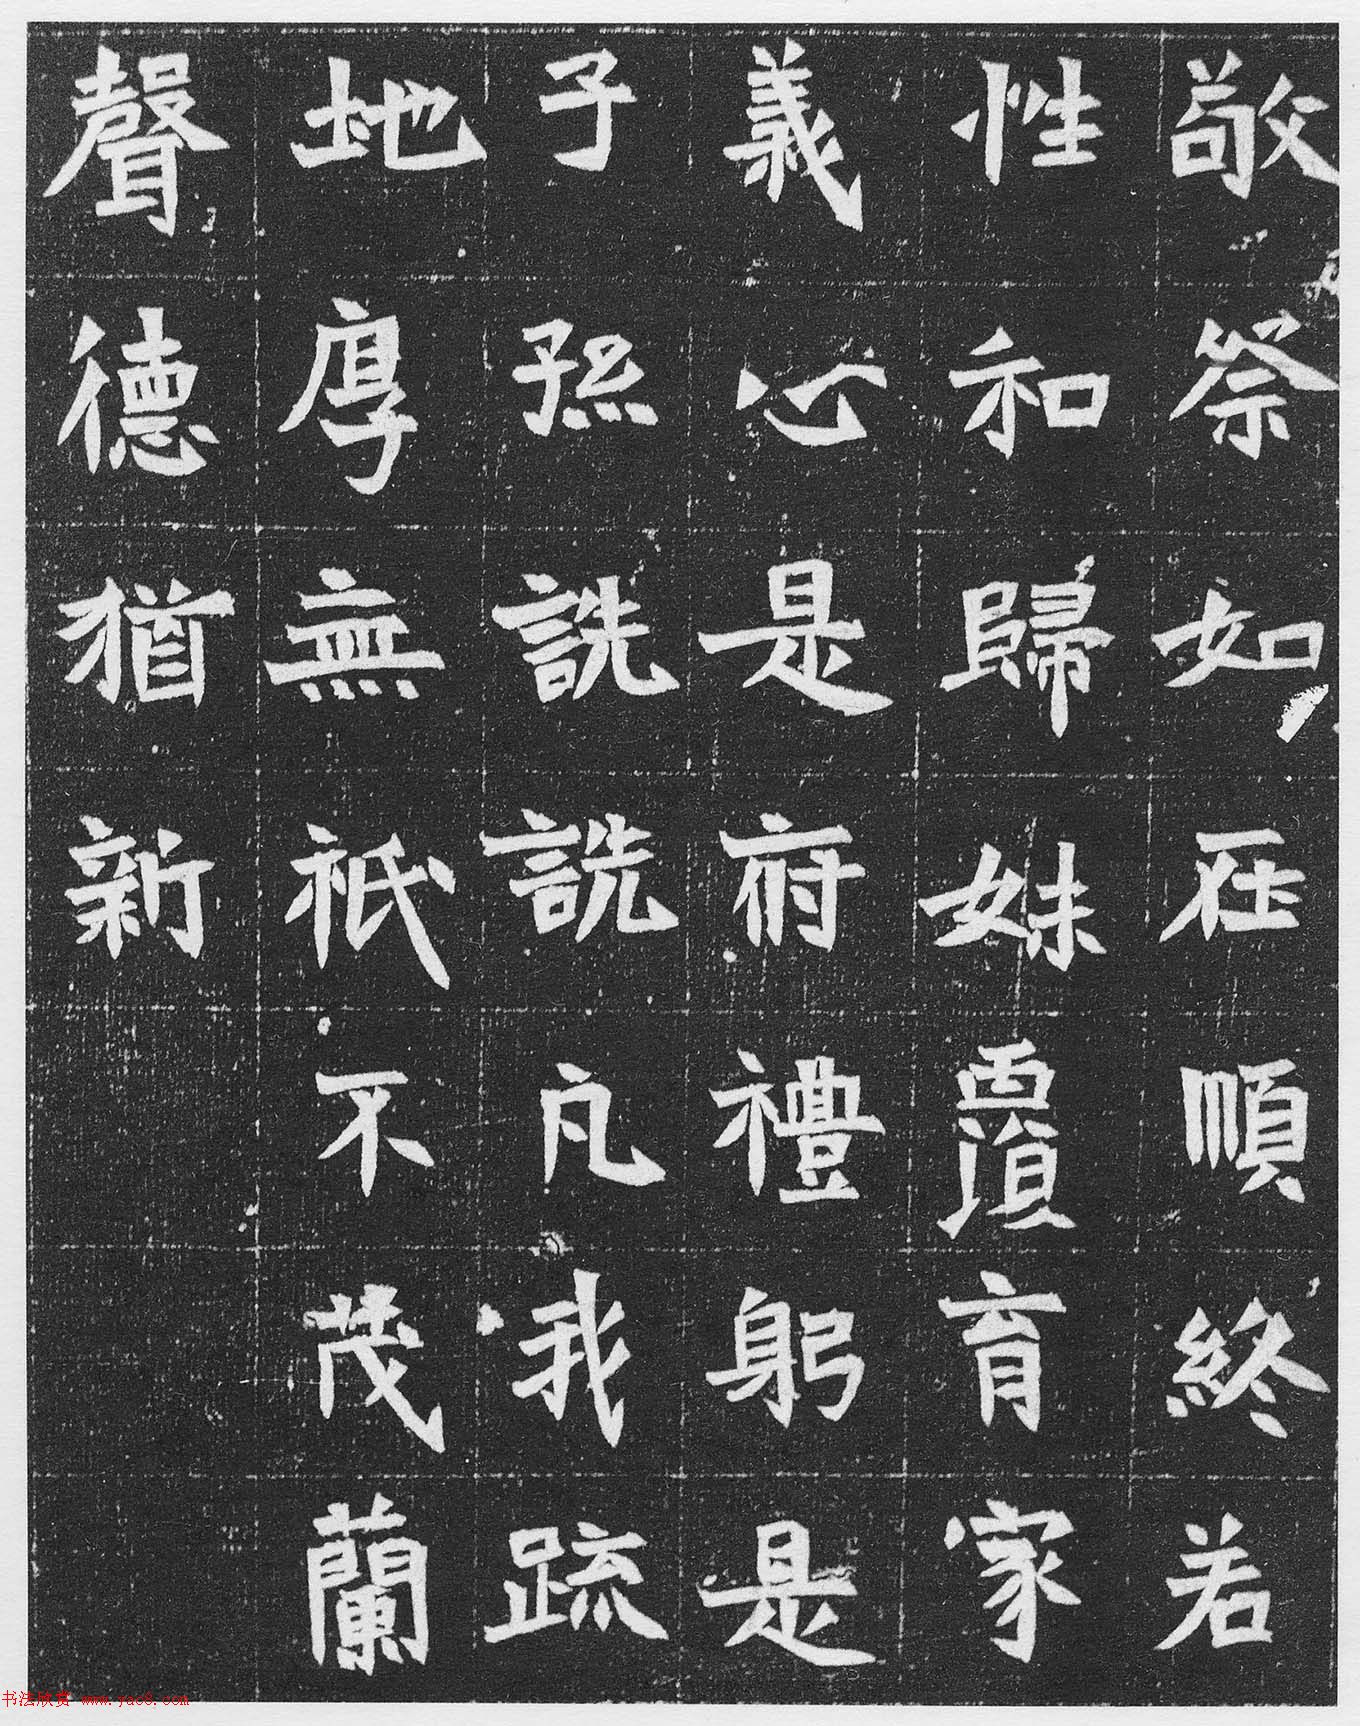 敬祭如在順終若
性和歸妹賈育家
義心是府禮躬是
子孫詵詵凡我疏
地厚無祇不茂蘭
聲德猶新
书法欣赏 www.yac8.com